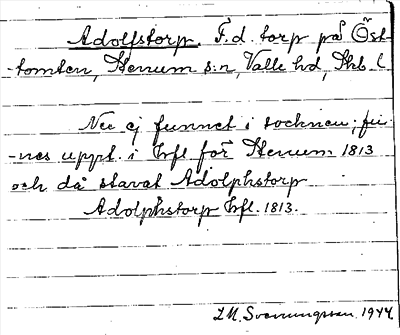 Adolfstorp. F.d. torp på Öst-
-tomten, Stenum s:n, Valle hd, Skb. l.
Nu ej funnet i socknen; fin-
-nes uppt. i Hfl för Stenum 1813
och då stavat Adolphstorp
Adolphstorp Hfl. 1813.
I.M. Svenungsson. 1944.